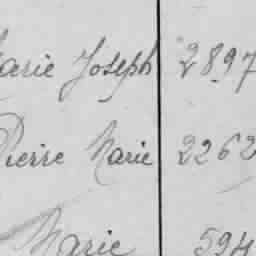 Marie Joseph 2897
Pierre Marie 2262
Marie 594